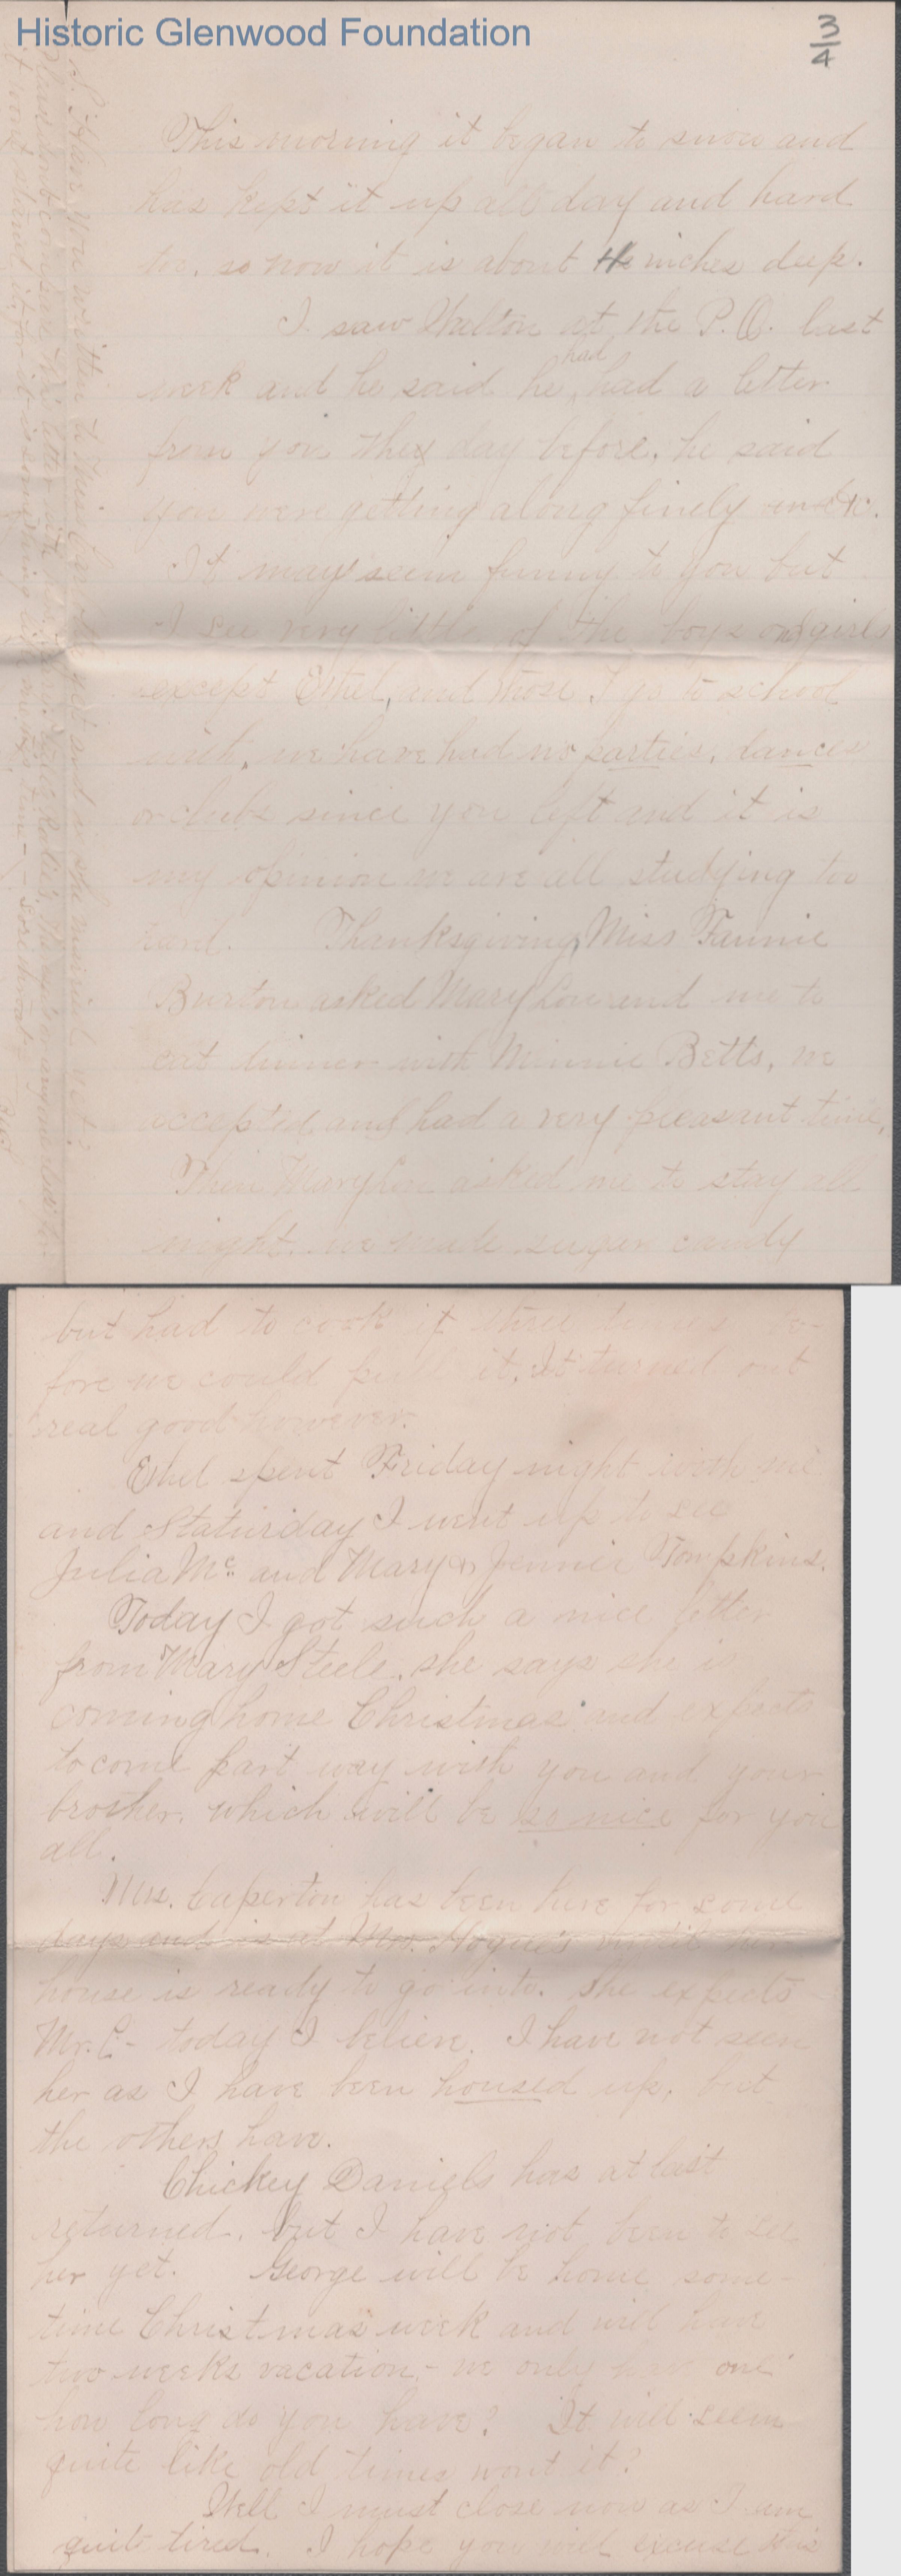 Historic Glenwood Foundation
3/4
This morning it began to snow and
has kept it up all day and hard
too, so now it is about 4 inches deep.
I saw Walton at the P.O. last
week and he said he had had a letter
from you they day before, he said
you were getting along finely and &c.
It may seem funny to you but
I see very little of the boys and girls
except Ethel, and those I go to school
with, we have had no parties, dances
or clubs since you left and it is
my opinion we are all studying too
hard. Thanksgiving, Miss Fannie
Burton asked Mary Lou and me to
eat dinner with Minnie Betts, we
accepted and had a very pleasant time.
Then Mary Lou asked me to stay all
night. we made sugar candy
but had to cook it three times be-
fore we could pull it. It turned out
real good however.
Ethel spent Friday night with me
and Staturday I went up to see
Julia Mc. and Mary & Jennie Tompkins.
Today I got such a nice letter
from Mary Steele, she says she is
coming home Christmas and expects
to come part way with you and your
brother, which will be so nice for you
all.
Mrs. Caperton has been here for some
days and is at Mrs. Hogue's until her
house is ready to go into. She expects
Mr. C- today I believe. I have not seen
her as I have been housed up, but
the others have.
Chickey Daniels has at last
returned, but I have not been to see
her yet. George will be home some-
time Christmas week and will have
two weeks vacation,- we only have one
how long do you have? It will seem
quite like old times wont it?
Well I must close now as I am
quite tired. I hope you will excuse this
S. Have you written to